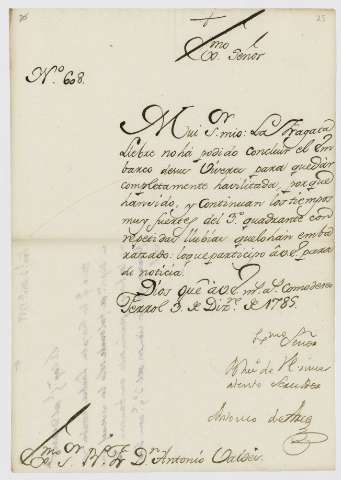 25
Exmo. Señor
N.º 608.
Mui Sr. mio: La Fragata
Liebre no há podido concluir el em
barco desus Viveres para quedár
completamente havilitada, porque
han sido, y Continuan los tiempos
muy fuertes del 3.º quadrante con
repetidas llubias quelohan emba
razado: loque participo á V.E. para
su noticia.
Dios gue. á V.E. ms. as. como deseo
Ferrol 3 de Dizre. de 1785.
Exmo. Señor
atento Servidor
Antonio de
Exmo. Sr. Bo. Fr. Dn. Antonio Valdés.